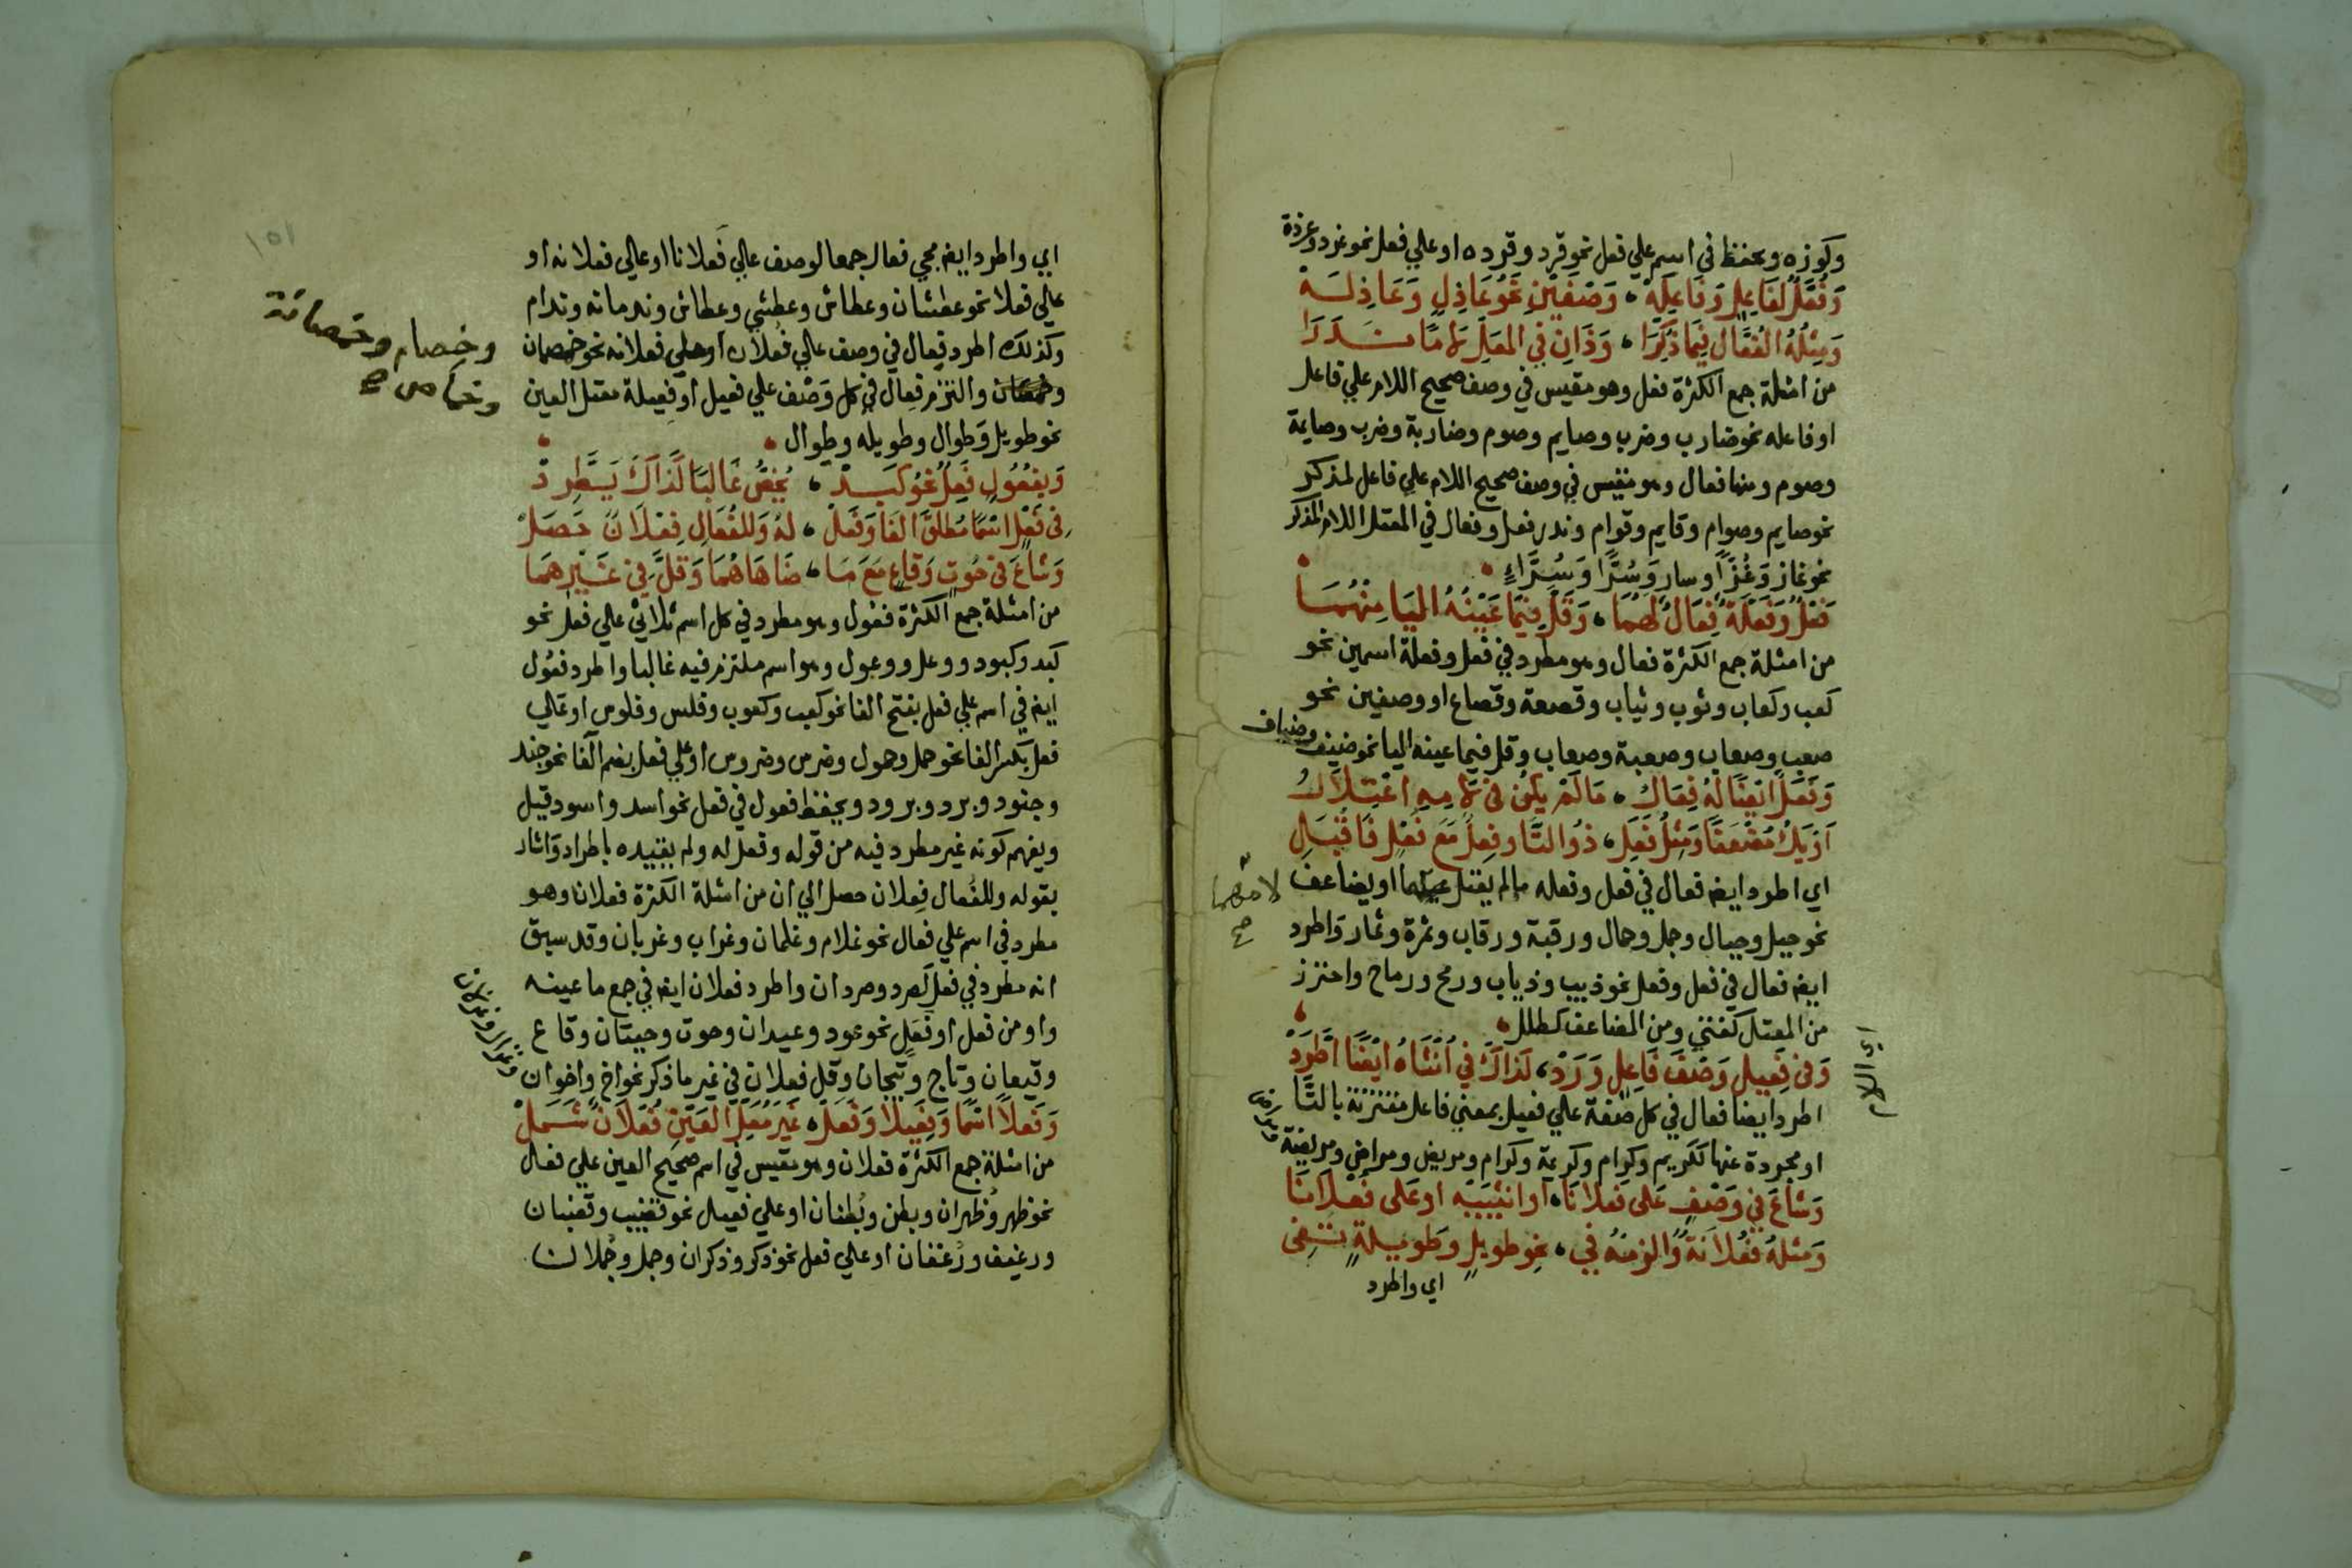 وكوزه ويحفظ في اسم علي فعل نحو قرد وقرده او علي فعل نحو غرد وغردة
وَفُعَّلٌ لفَاعِلٍ وَفَاعِلَهْ ، وَصْفَيْنِ نَحْوُ عَاذِلٍ وَعَاذِلَهْ
وَمِثْلُهُ الفُعَّالُ فِيمَا ذُكِّرَا ، وَذَانِ فِي المُعَلِّ لَامًا نَدَرَا
من امثلة جمع الكثرة فعل وهو مقيس في وصف صحيح اللام علي فاعل
او فاعله نحو ضارب وضرب وصايم وصوم وضاربة وضرب وصايمة
وصوم ومنها فعال وهو مقيس في وصف صحيح اللام علي فاعل لمذكر
نحو صايم وصوام وقايم وقوام وندر فعل وفعال في المعتل اللام المذكر
نحو غاز وَغُزًّا وسار وَسُرًّا وَسُرَّاءٍ
فَعْلٌ وَفَعْلَةٌ فِعَالٌ لَهُمَا ، وَقَلَّ فِيمَا عَيْنُهُ اليَا مِنْهُمَا
من امثلة جمع الكثرة فعال وهو مطرد في فعل وفعلة اسمين نحو
كعب وكعاب وثوب وثياب وقصعة وقصاع او وصفين نحو
صعب وصعاب وصعبة وصعاب وقل فيما عينه اليا نحو ضيف وضياف
وَفَعَلٌ ايْضًا لَهُ فِعَالُ ، مَا لَمْ يَكُنْ فِي لَامِهِ اعْتِلَالُ
اَوْ يَكُ مُضْعَفًا وَمِثْلُ فَعَلِ ، ذُو التَّا وفِعْلٌ مَعَ فُعْلٍ فَاقْبَلِ
اي اطرد ايضه فعال في فعل وفعله مالم يعتل او يضاعف
لامهما
صح
نحو جبل وجبال وجمل وجمال ورقبة ورقاب وثمرة وثمار واطرد
ايضه فعال في فعل وفعل نحو ذيب وذياب ورمح ورماح واحترز
من المعتل كفتي ومن المضاعف كطلل
وَفي فَعِيلٍ وَصْفَ فَاعِلٍ وَرَدْ ، كَذَاكَ فِي اُنْثَاهُ ايْضًا اطَّرَدْ
اي اللام
اطرد ايضا فعال في كل صفة علي فعيل بمعني فاعل مقترنة بالتا
او مجردة عنها ككريم وكرام وكريمة وكرام ومريض ومراض ومريضة
ومراض
وَشَاعَ فِي وَصْفٍ عَلَى فَعْلَانَا ، اَوْ انثَيَيْهِ اوْ عَلَى فُعْلَانَا
وَمِثْلُهُ فُعْلَانَةٌ وَالْزَمْهُ فِي ، نحْوِ طَوِيلٍ وَطَوِيلَةٍ تَفِي
اي واطرد
١٥١
اي واطرد ايضه مجي فعال جمعا لوصف عالي فَعلانا او عالي فعلانه او
عالي فعلا نحو عطشان وعطاش وعطشي وعطاش وندمانه وندام
وكذلك اطرد فِعال في وصف عالي فُعلان او علي فعلانه نحو خمصان
وخمصانة
وخماص صح
والتزم فِعال في كل وَصْف علي فعيل او فعيلة معتل العين
نحو طويل وَطوال وطويله وطوال
وَبِفُعُولٍ فَعِلٌ نَحْوُ كَبِدْ ، يُخَصُّ غَالِبًا كَذَاكَ يَطَّرِدْ
فِي فَعْلٍ اسْمًا مُطْلَقَ الفَا وَفَعَلْ ، لهُ وَللفُعَالِ فِعْلَانٌ حَصَلْ
وَشَاعَ فِي حُوتٍ وَقَاعٍ مَعَ مَا ، ضَاهَاهُمَا وَقَلَّ فِي غَيْرِهِمَا
من امثلة جمع الكثرة فعُول وهو مطرد في كل اسم ثلاثي عالي فعل نحو
كبد وكبود ووعل ووعول وهو اسم ملتزم فيه غالبا واطرد فعُول
ايضه في اسم علي فعل بفتح الفا نحو كعب وكعوب وفلس وفلوس او عالي
فعل بكسر الفا نحو حمل وحمول وضرس وضروس او علي فعل بضم الفا نحو جند
وجنود وبرد وبرود ويحفظ فعول في فعل نحو اسد واسود قيل
ويفهم كونه غير مطرد فيه من قوله وفعل له ولم يقيده باطراد وَاشار
بقوله وللفُعال فِعلان حصل الي ان من امثلة الكثرة فعلانا وهو
مطرد في اسم علي فعال نحو غلام وغلمان وغراب وغربان وقد سبق
انه مطرد في فعل كصرد وصردان واطرد فعلان ايضه في جمع ما عينه
واو من فعل او فعَل نحو عود وعيدان وحوت وحيتان وقاع
وقيعان وتاج وتيجان وقل فعلان في غير ما ذكر نحو اخ واخوان
وغزال وغزلان
وَفَعْلاً اسْمًا وَفَعِيلًا وَفَعَلْ ، غَيْرَ مُعَلِّ العَيْنِ فُعْلَانٌ شَمَلْ
من امثلة جمع الكثرة فعلان وهو مقيس في اسم صحيح العين علي فعل
نحو ظهر وُظهران وبطن وبُطنان او علي فعيل نحو قضيب وقضبان
ورغيف ورُغفان او عالي فعل نحو ذكر وذكران وجمل وجُملان